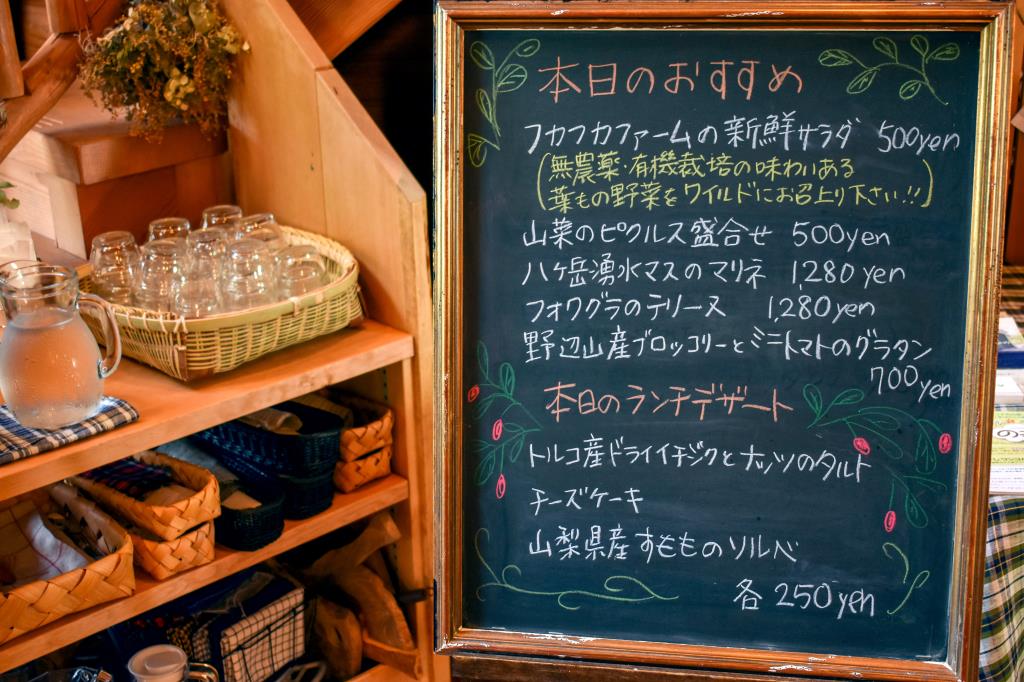 本日のおすすめ
フカフカファームの新鮮サラダ 500yen
(無農薬・有機栽培の味わいある
葉もの野菜をワイルドにお召上り下さい!!)
山菜のピクルス盛合せ 500yen
八ヶ岳湧水マスのマリネ 1,280yen
フォワグラのテリーヌ 1,280yen
野辺山産ブロッコリーとミニトマトのグラタン
700yen
本日のランチデザート
トルコ産ドライイチジクとナッツのタルト
チーズケーキ
山梨県産すもものソルベ
各250yen